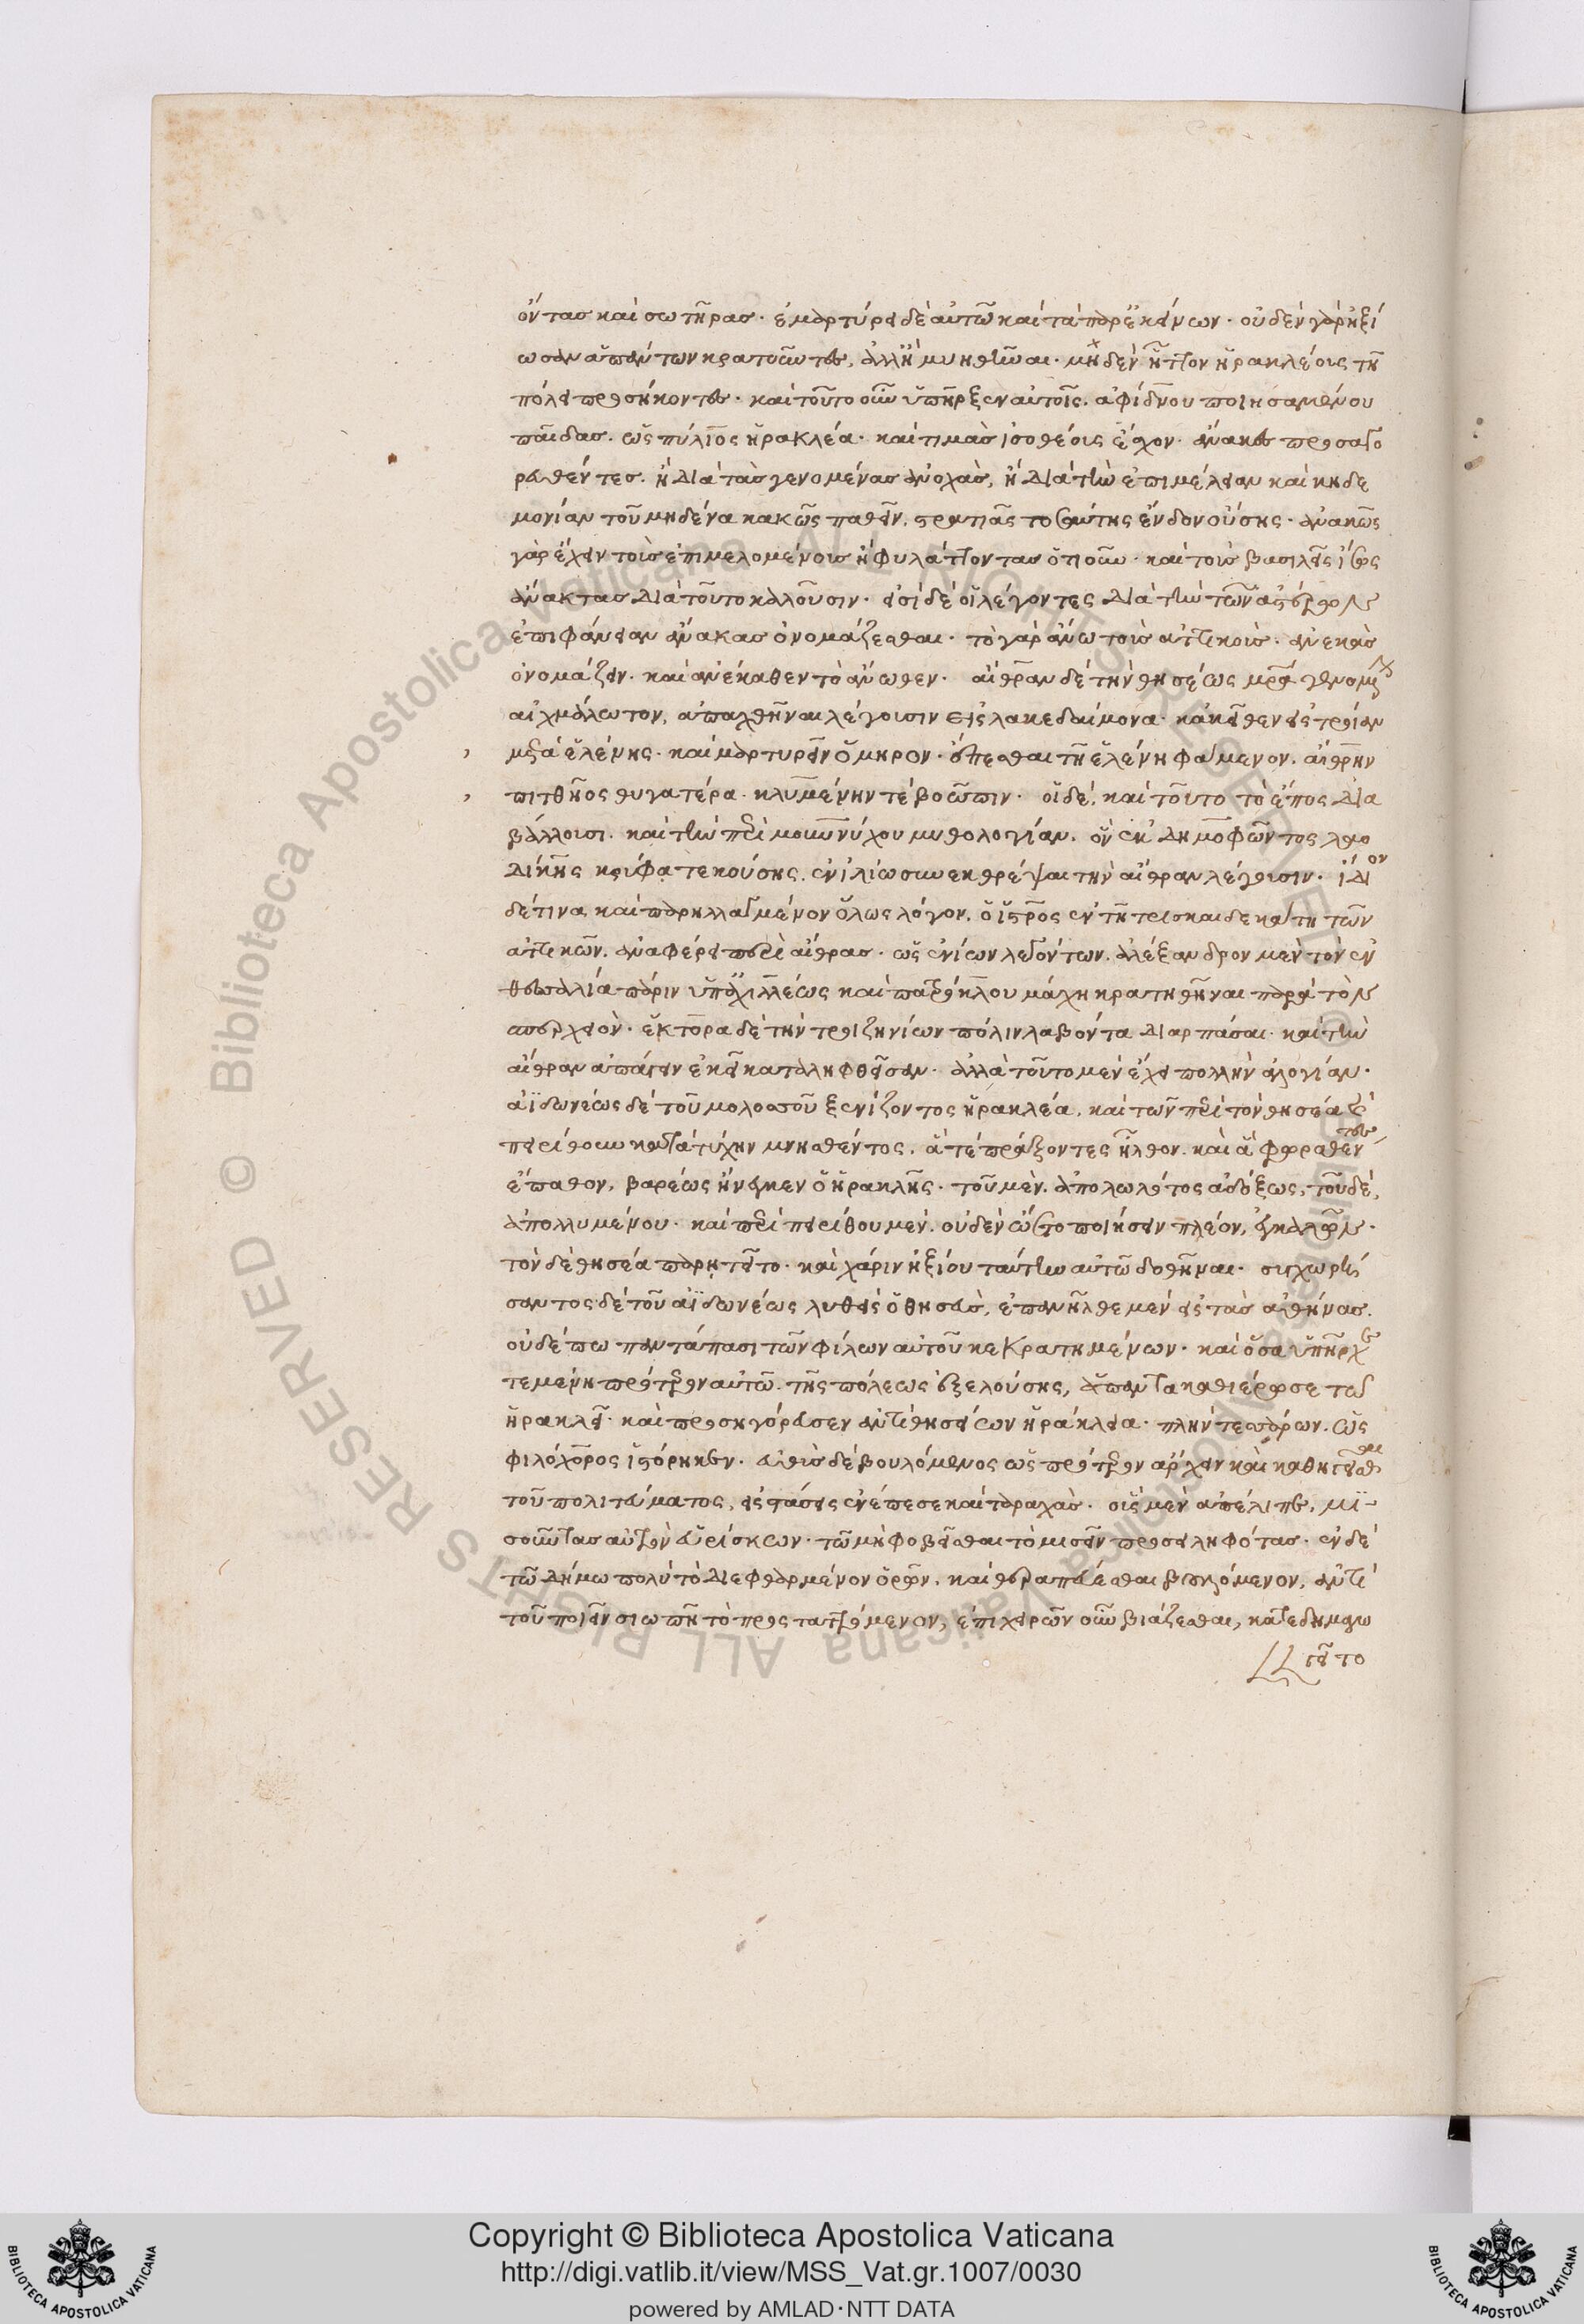 ὄντας καὶ σωτῆρας· ἐμαρτύρει δὲ αὐτῶ καὶ τὰ παρ' ἐκείνων· οὐδὲν γὰρ ἠξί
ωσαν ἁπάντων κρατοῦντες, ἀλλ' ἢ μυηθῆναι· μηδὲν ἧττον ἡρακλέους τῆ
πόλει προσήκοντες· καὶ τοῦτο οὖν ὑπῆρξεν αὐτοῖς. ἀφίδνου ποιησαμένου
παῖδας. ὡς πύλιος ἡρακλέα· καὶ τιμὰς ἰσοθέοις ἔσχον. ἄνακες προσαγο
ρευθέντες. ἢ διὰ τὰς γενομένας ἀνοχὰς, ἢ διὰ τὴν ἐπιμέλειαν καὶ κηδε
μονίαν τοῦ μηδένα κακῶς παθεῖν, στρατιᾶς τοσαύτης ἔνδον οὔσης· ἀνακῶς
γὰρ ἔχειν τοὺς ἐπιμελομένους ἢ φυλάττοντας ὁτιοῦν· καὶ τοὺς βασιλεῖς ἴσως
ἄνακτας διὰ τοῦτο καλοῦσιν· εἰσὶ δὲ οἱ λέγοντες διὰ τὴν τῶν ἀστέρων
ἐπιφάνειαν ἄνακας ὀνομάζεσθαι· τὸ γὰρ ἄνω τοὺς ἀττικοὺς· ἀνεκὰς
ὀνομάζειν. καὶ ἀνέκαθεν τὸ ἄνωθεν· αἴθραν δὲ τὴν θησέως μητέρα γενομένην
αἰχμάλωτον, ἀπαχθῆναι λέγουσιν εἰς λακεδαίμονα· κἀκεῖθεν εἰς τροίαν
μετὰ ἑλένης· καὶ μαρτυρεῖν ὅμηρον· ἕπεσθαι τῆ ἑλένη φάμενον. αἴθρην
πιτθῆος θυγατέρα· κλυμένην τὲ βοῶπιν· οἱ δὲ, καὶ τοῦτο τὸ ἔπος δια
βάλλουσι. καὶ τὴν περὶ μουνύχου μυθολογίαν, ὃν ἐκ δημοφῶντος λαο
δίκης κρύφα τεκούσης. ἐν ἰλίω συνεκθρέψαι τὴν αἴθραν λέγουσιν· ἴδιον
δέ τινα καὶ παρηλλαγμένον ὅλως λόγον, ὁ ἴστρος ἐν τῆ τρισκαιδεκάτη τῶν
ἀττικῶν. ἀναφέρει περὶ αἴθρας· ὡς ἐνίων λεγόντων. ἀλέξανδρον μὲν τὸν ἐν
θεσσαλία πάριν ὑπ' ἀχιλλέως καὶ πατρόκλου μάχη κρατηθῆναι παρὰ τὸν
σπερχειὸν· ἕκτορα δὲ τὴν τροιζηνίων πόλιν λαβόντα διαρπάσαι· καὶ τὴν
αἴθραν ἀπάγειν ἐκεῖ καταληφθεῖσαν· ἀλλὰ τοῦτο μὲν ἔχει πολλὴν ἀλογίαν·
ἀϊδωνέως δὲ τοῦ μολοσσοῦ ξενίζοντος ἡρακλέα, καὶ τῶν περὶ τὸν θησέα καὶ
πειρίθουν κατὰ τύχην μνησθέντος, ἅ τε πράξοντες ἦλθον. καὶ ἃ φωραθέντες
ἔπαθον, βαρέως ἤνεγκεν ὁ ἡρακλῆς· τοῦ μὲν. ἀπολωλότος ἀδόξως, τοῦ δὲ,
ἀπολλυμένου· καὶ περὶ πειρίθου μὲν. οὐδὲν ὤετο ποιήσειν πλέον, ἐγκαλῶν·
τὸν δὲ θησέα παρητεῖτο· καὶ χάριν ἠξίου ταύτην αὐτῶ δοθῆναι· συγχωρή
σαντος δὲ τοῦ ἀϊδωνέως λυθεὶς ὁ θησεὺς, ἐπανῆλθε μὲν εἰς τὰς ἀθήνας.
οὐδέπω παντάπασι τῶν φίλων αὐτοῦ κεκρατημένων· καὶ ὅσα ὑπῆρχε
τεμένη πρότερον αὐτῶ. τῆς πόλεως ἐξελούσης, ἅπαντα καθιέρωσε τῶ
ἡρακλεῖ· καὶ προσηγόρευσεν ἀντὶ θησείων ἡράκλεια· πλὴν τεσσάρων. ὡς
φιλόχορος ἱστόρηκεν. εὐθὺς δὲ βουλόμενος ὡς πρότερον ἄρχειν καὶ καθηγεῖσθαι
τοῦ πολιτεύματος, εἰς στάσεις ἐνέπεσε καὶ ταραχὰς· οὓς μὲν ἀπέλιπε, μι
σοῦντας αὐτὸν εὑρίσκων· τῶ μὴ φοβεῖσθαι τὸ μισεῖν προσειληφότας· ἐν δὲ
τῶ δήμω πολὺ τὸ διεφθαρμένον ὁρῶν, καὶ θεραπεύεσθαι βουλόμενον, ἀντὶ
τοῦ ποιεῖν σιωπῆ τὸ προσταττόμενον, ἐπιχειρῶν οὖν βιάζεσθαι, κατεδημαγω
γεῖτο